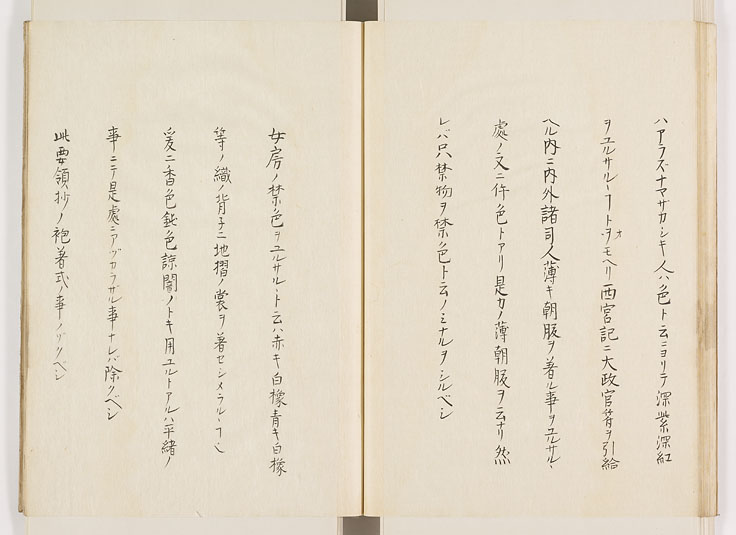 ハアラズナマサカシキ人ハ色ト云ニヨリテ深紫深紅
ヲユルサルヽヿトヲオモヘリ西宮記ニ大政官符ヲ引給
ヘル内ニ内外諸司人薄キ朝服ヲ著ル事ヲユルサルヽ
處ノ文ニ件色トアリ是カノ薄朝服ヲ云ナリ然
レバ只禁物ヲ禁色ト云ノミナルヲシルベシ
女房ノ禁色ヲユルサルヽト云ハ赤キ白橡青キ白橡
等ノ織ノ背子ニ地摺ノ裳ヲ著セシメラルヽヿ也
爰ニ香色鈍色諒闇ノトキ用ユルトアルハ平緒ノ
事ニテ是處ニアヅカラザル事ナレバ除クベシ
此要領抄ノ袍著式ノ事ノゾクベシ